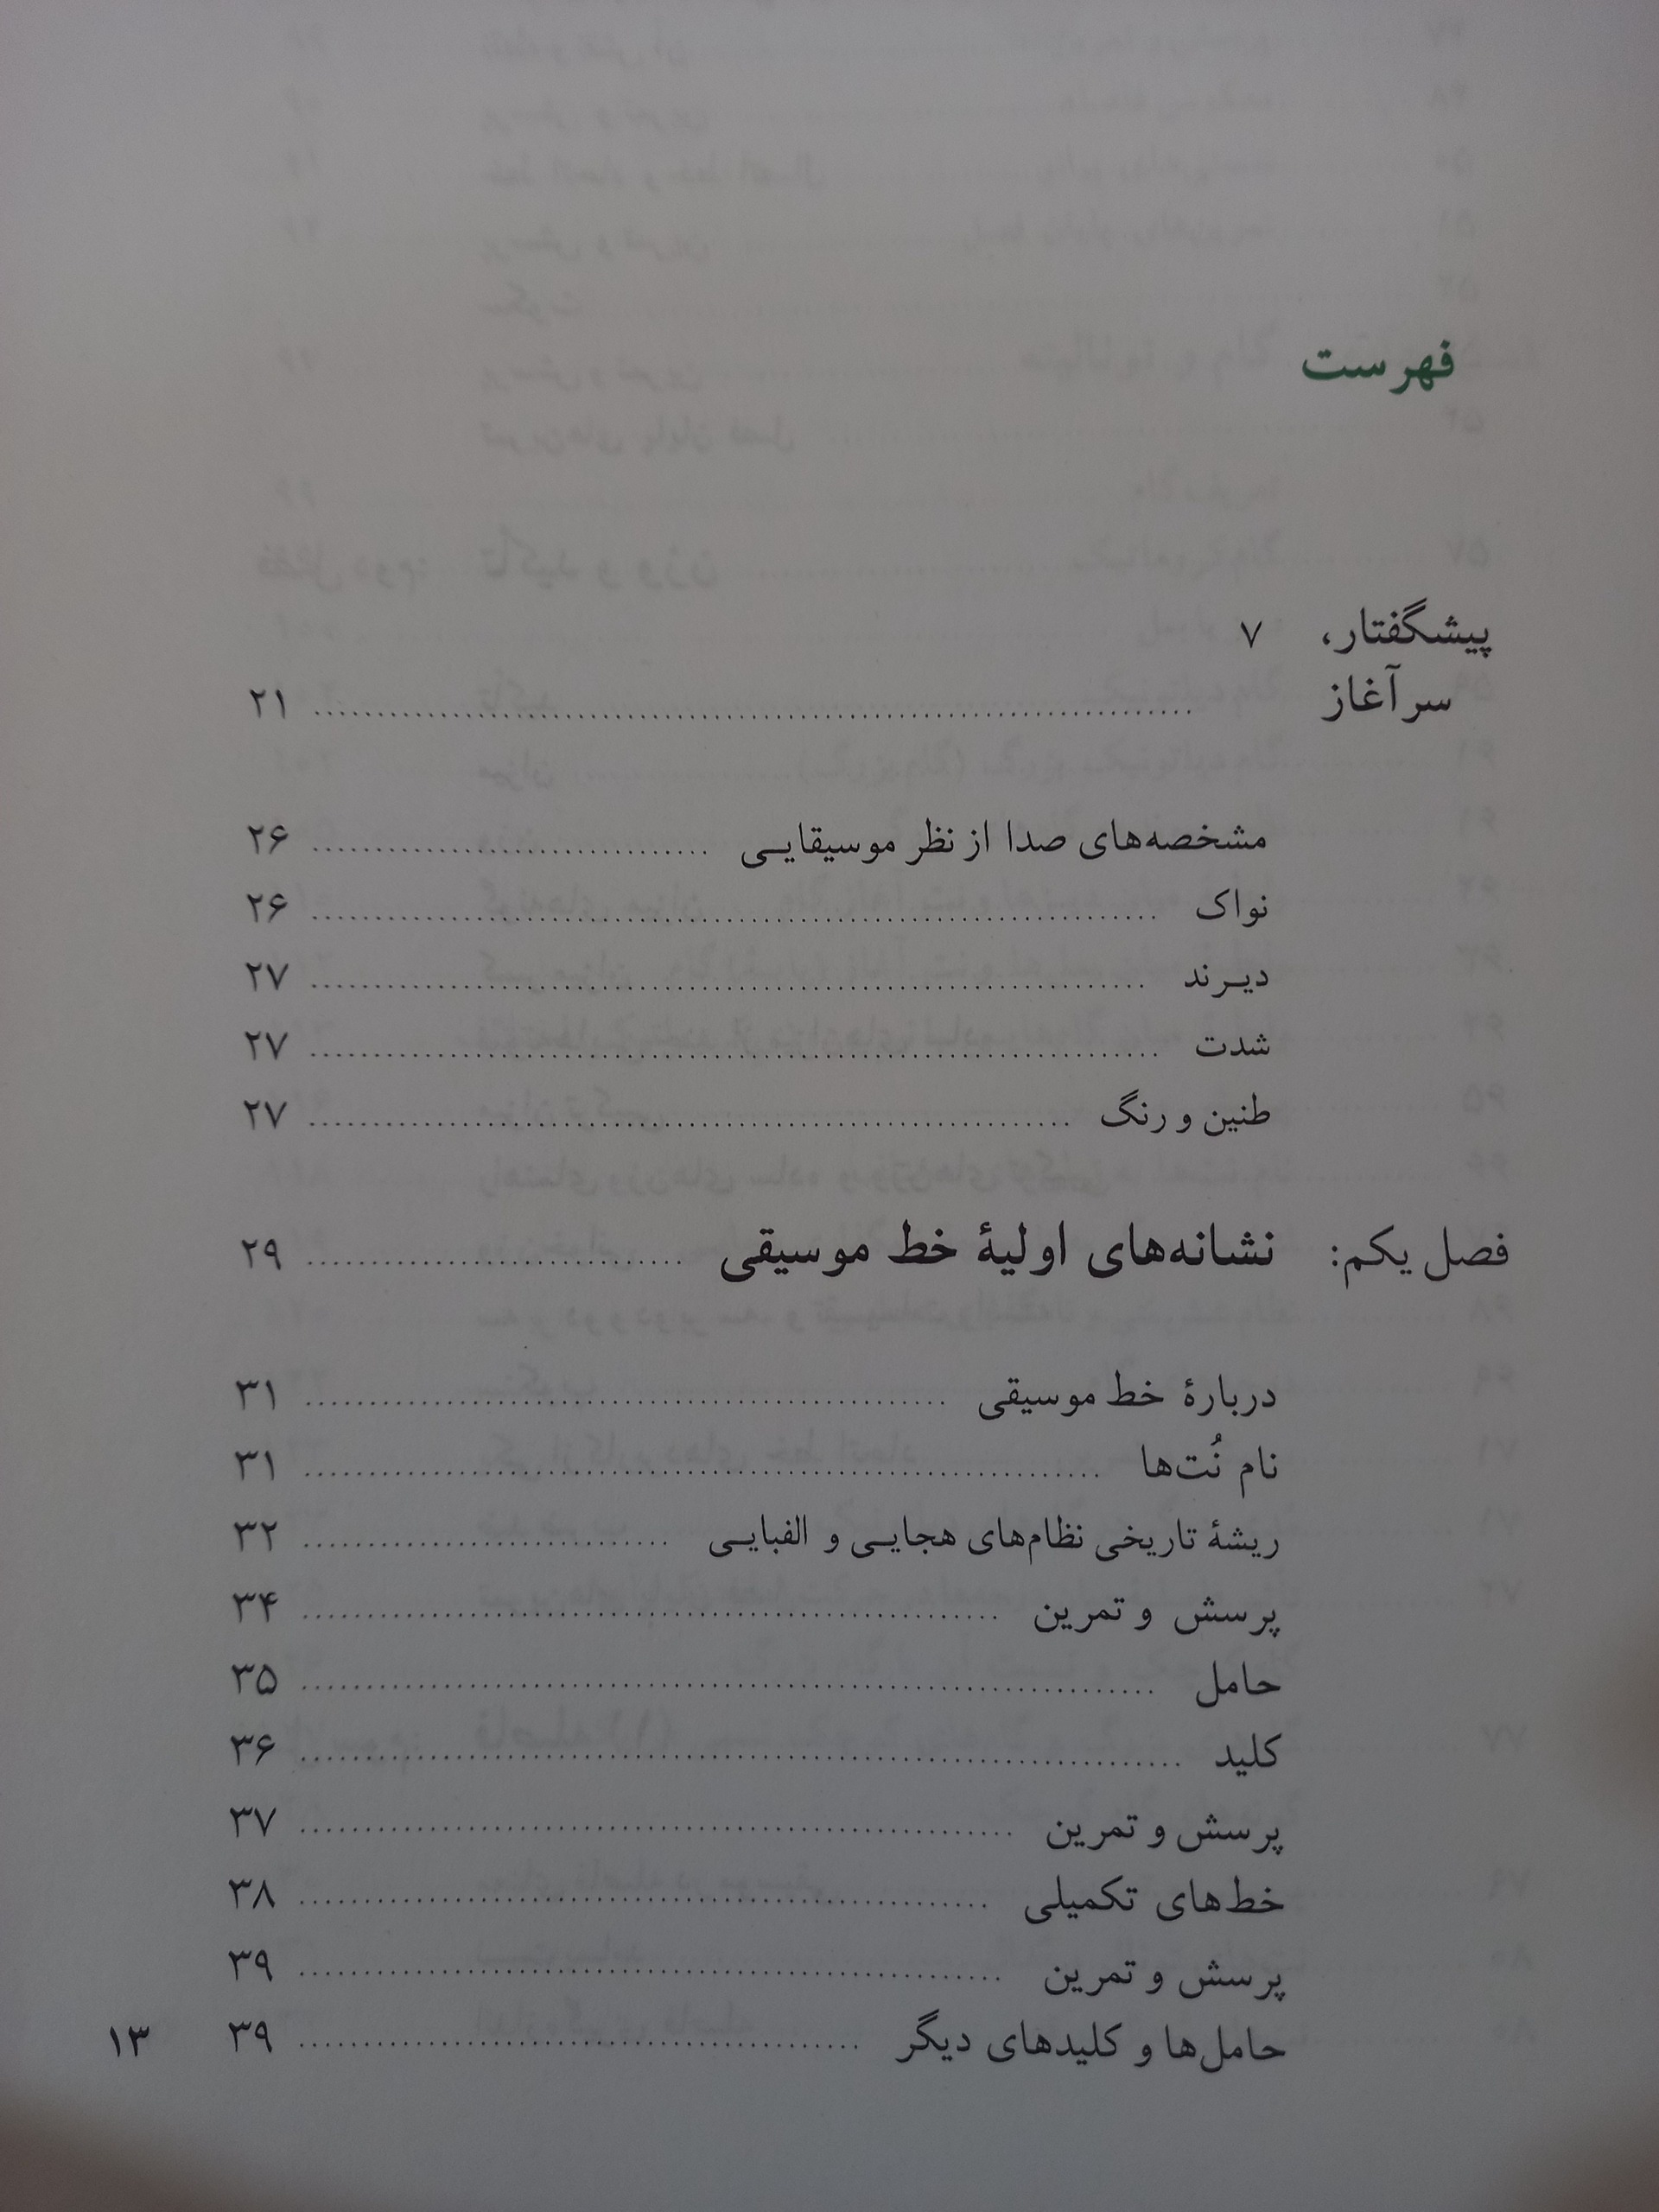 فهرست
پیشگفتار، ۷
سرآغاز ........ ۲۱
مشخصه‌های صدا از نظر موسیقایی ........ ۲۶
نواک ........ ۲۶
دیرند ........ ۲۷
شدت ........ ۲۷
طنین و رنگ ........ ۲۷
فصل یکم: نشانه‌های اولیهٔ خط موسیقی ........ ۲۹
دربارهٔ خط موسیقی ........ ۳۱
نام نُت‌ها ........ ۳۱
ریشهٔ تاریخی نظام‌های هجایی و الفبایی ........ ۳۲
پرسش و تمرین ........ ۳۴
حامل ........ ۳۵
کلید ........ ۳۶
پرسش و تمرین ........ ۳۷
خط‌های تکمیلی ........ ۳۸
پرسش و تمرین ........ ۳۹
حامل‌ها و کلیدهای دیگر ........ ۳۹
۱۳